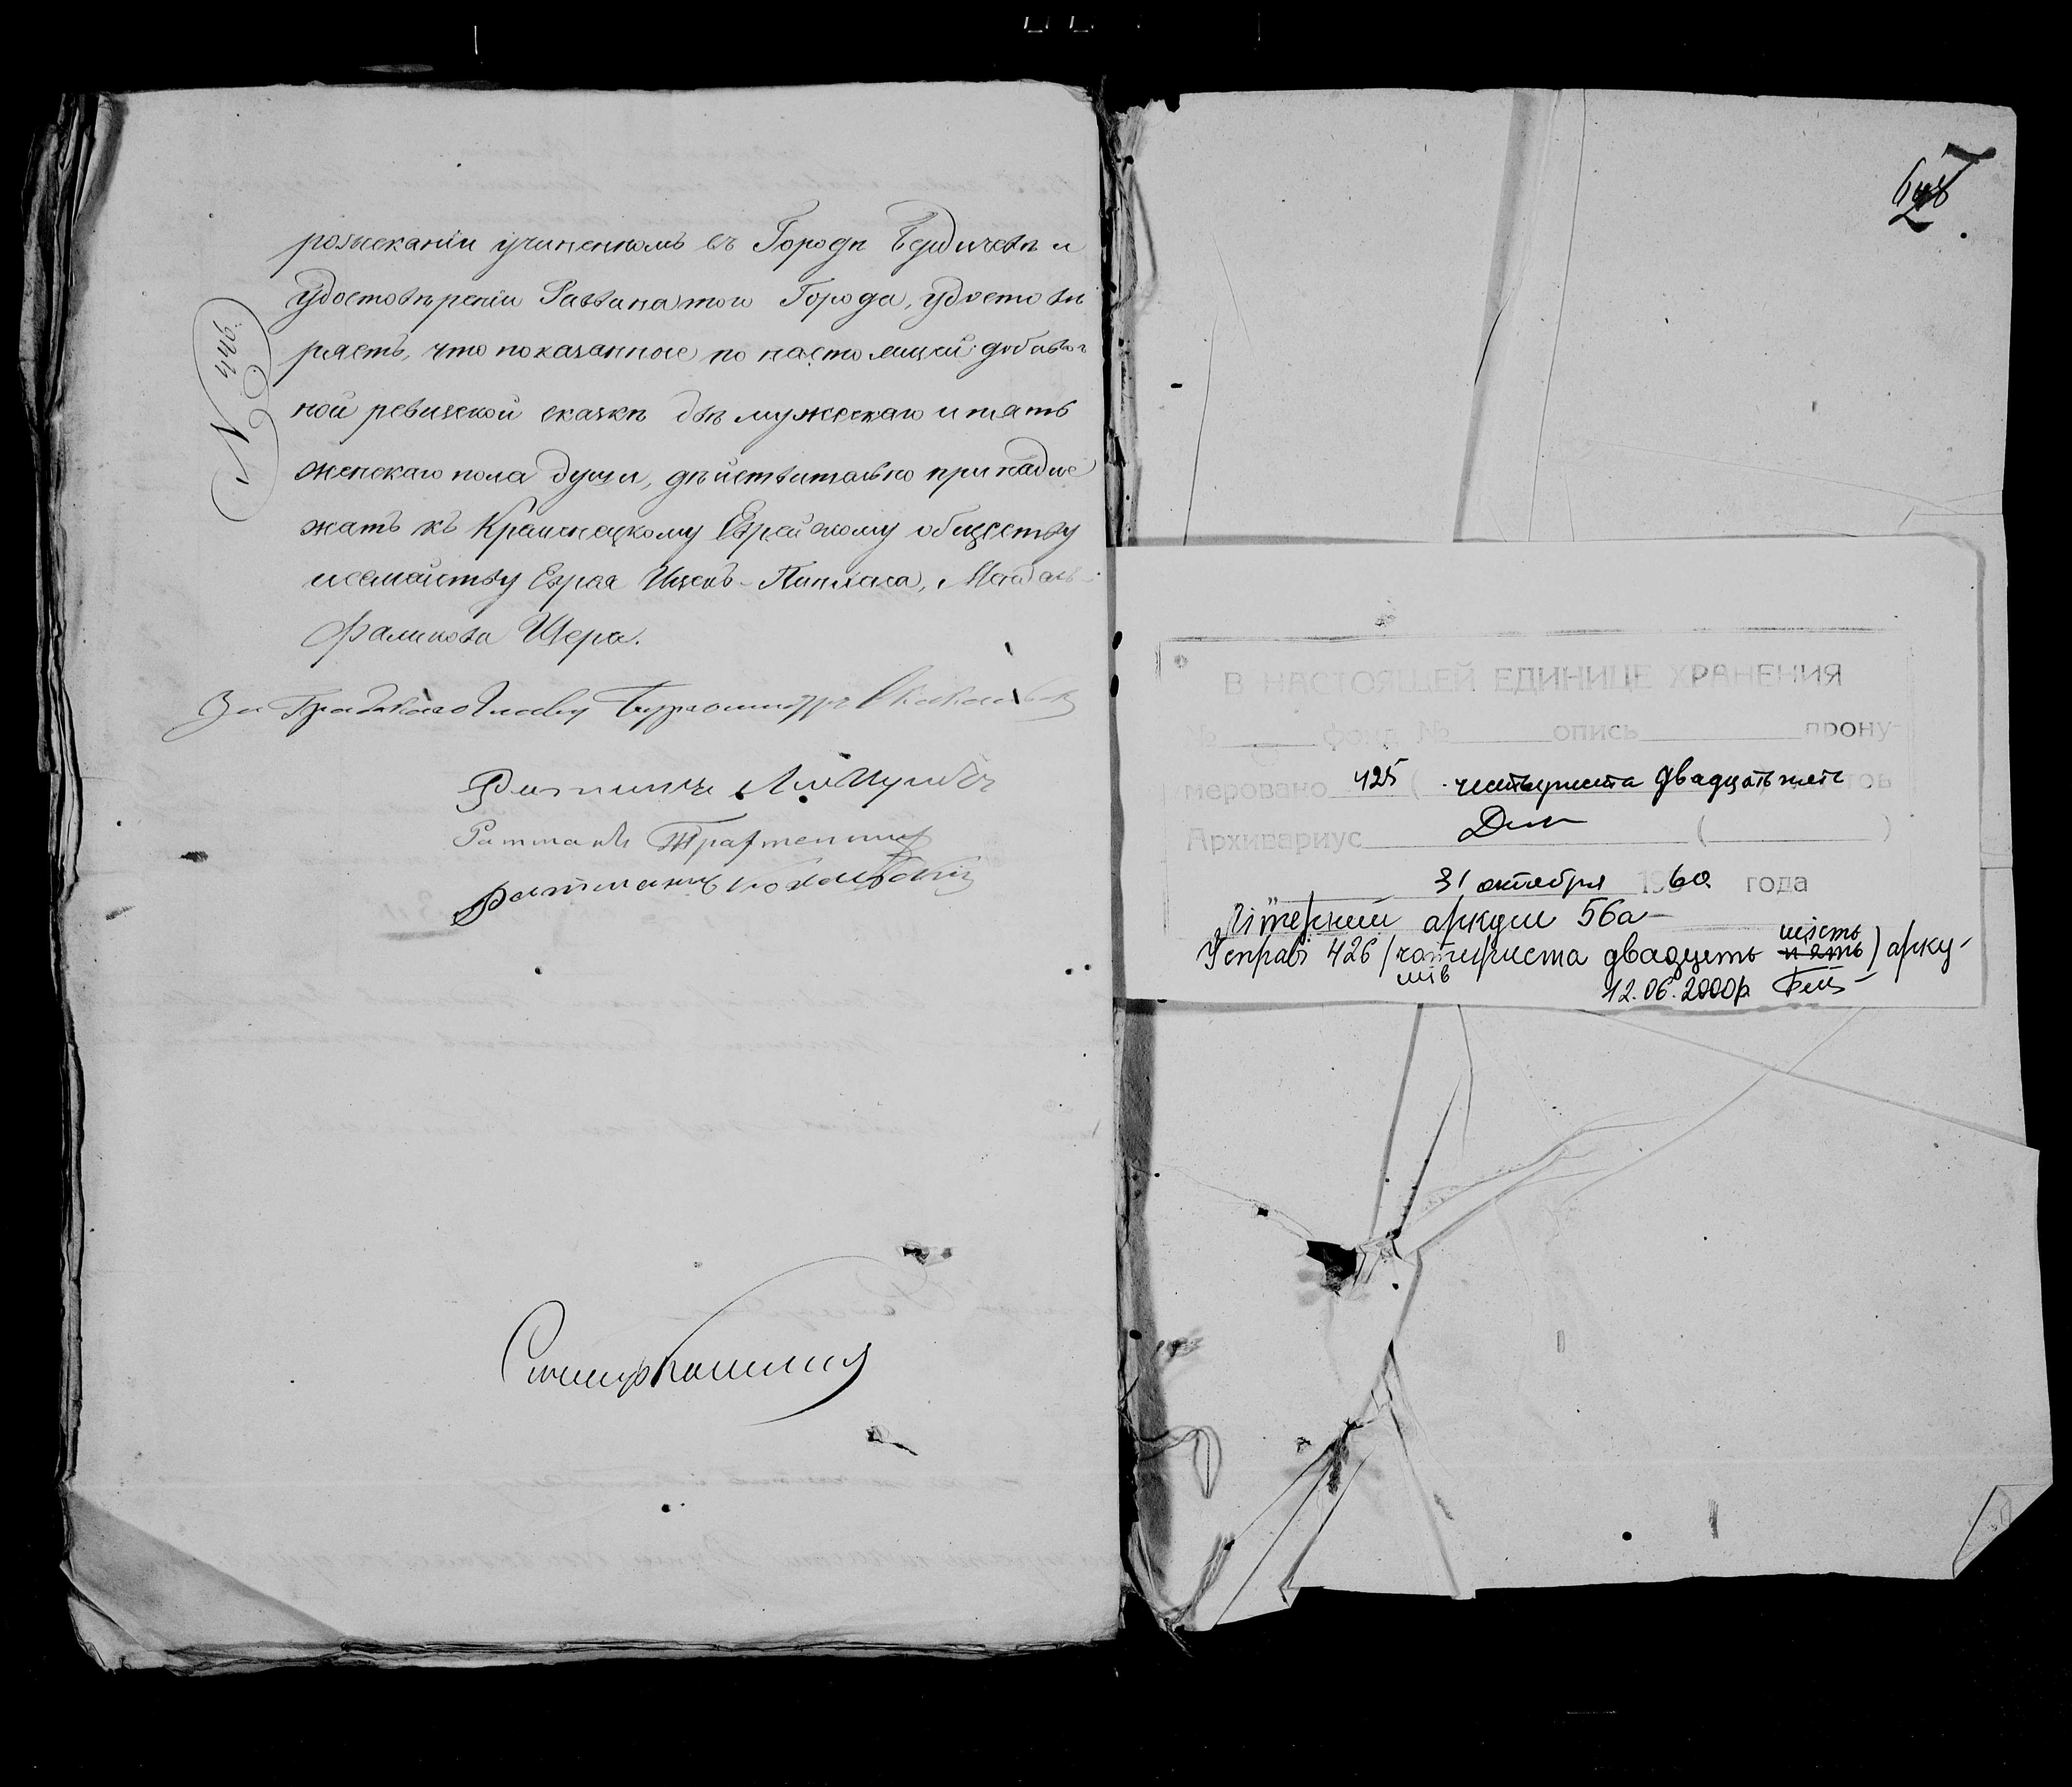 розысканіи учиненномъ въ Городѣ Бердичевѣ и
удостовѣреніи Раввина того Города, удостовѣ
ряетъ, что показанные по настоящей добавоч
ной ревизской сказкѣ двѣ мужескаго и пять
женскаго пола души, дѣйствительно принадле
жатъ къ Еврейскому обществу
и семейству Еврея Пинхаса,
Фаликова Шера.
№ 446.
За Градскаго Главу Бургомистръ
Ратманъ
Ратманъ
Ратманъ
В НАСТОЯЩЕЙ ЕДИНИЦЕ ХРАНЕНИЯ
№ фонд № опись прону-
меровано 425 ( четыриста двадцать пять
Архивариус ( )
31 октября 1960 года
Літерний аркуш 56а
Усправі 426 (чотириста двадцять шість пять) арку-
шів
12.06.2000р